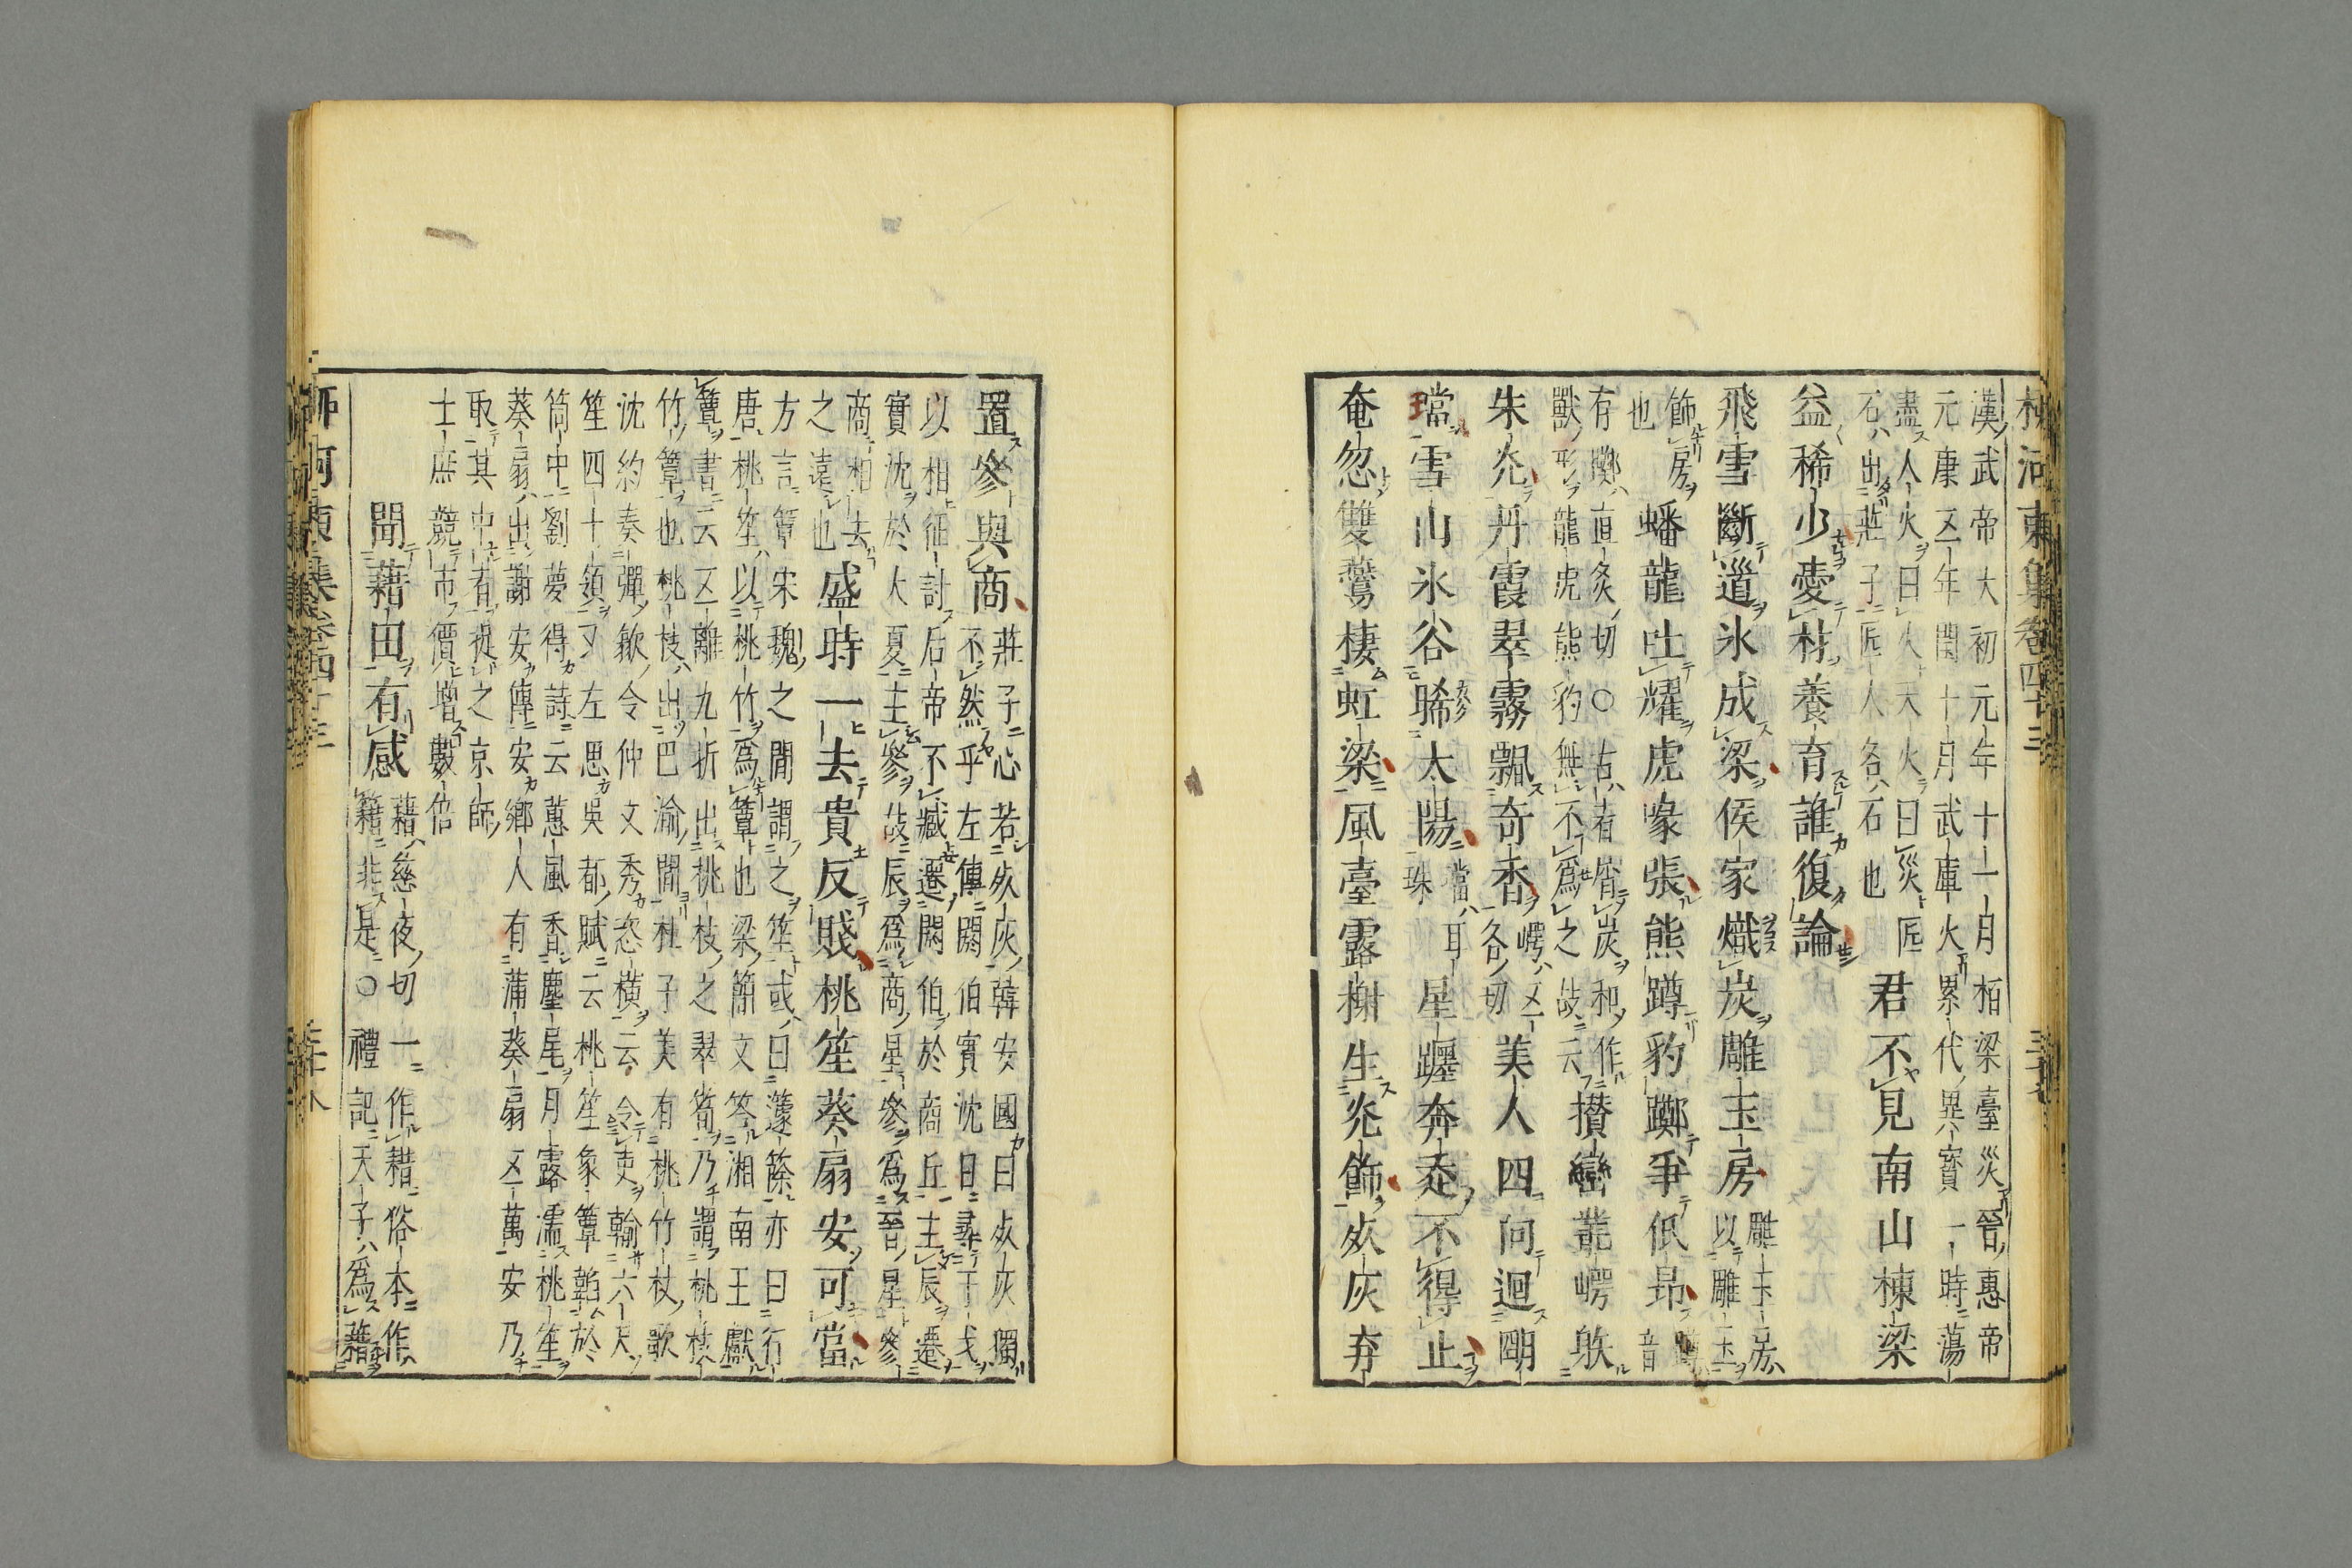 柳河東集卷四十三
漢武帝大初元年十一月栢梁臺災晉惠帝
元康五年閏十月武庫火累代異寶一時蕩
盡人火曰火天火曰災匠
石出莊子匠人名石也
君不見南山棟梁
益稀少愛材養育誰復論
飛雪斷道氷成梁侯家熾炭雕玉房
雕玉房
以雕玉
飾房
也
蟠龍吐耀虎喙張熊蹲豹躑爭低昻
音
有躑直炙切○古者屑炭和作
獸形龍虎熊豹無不爲之故云
攅巒叢崿射
朱光丹霞翠霧飄奇香
崿五
各切
美人四向迴明
璫雪山氷谷晞太陽
璫耳
珠
星躔奔走不得止
奄忽雙燕棲虹梁風臺露榭生光飾死灰弃
置參與商
莊子心若死灰韓安國曰死灰獨
不然乎左傳閼伯實沈日尋干戈
以相征討后帝不臧遷閼伯於商丘主辰遷
實沈於大夏主參故辰爲商星參爲晉星參
商相去
之遠也
盛時一去貴反賤桃笙葵扇安可當
方言簟宋魏之間謂之笙或曰籧篨亦曰行
唐桃笙以桃竹爲簟也梁簡文答湘南王獻
簟書云五離九折出桃枝之翠筍乃謂桃枝
竹簟也桃枝出巴渝間杜子美有桃竹杖歌
沈約奏彈歙令仲文秀恣橫云令吏輸六尺
笙四十領又左思吳都賦云桃笙象簟韜於
筒中劉夢得詩云蕙風香塵尾月露濡桃笙
葵扇出謝安傳安鄉人有蒲葵扇五萬安乃
取其中者捉之京師
士庶競市價增數倍
聞藉田有感
藉慈夜切一作耤俗本作
籍非是○禮記天子爲藉
柳河東集卷四十三